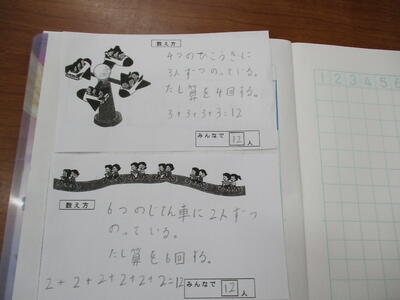 数え方
4つのひこうきに
3人ずつのっている。
たし算を4回する。
3+3+3+3=12
みんなで 12人
数え方
6つのじてん車に2人ずつ
のっている。
たし算を6回する。
2+2+2+2+2+2=12
みんなで 12人
1 2 3 4 5 6